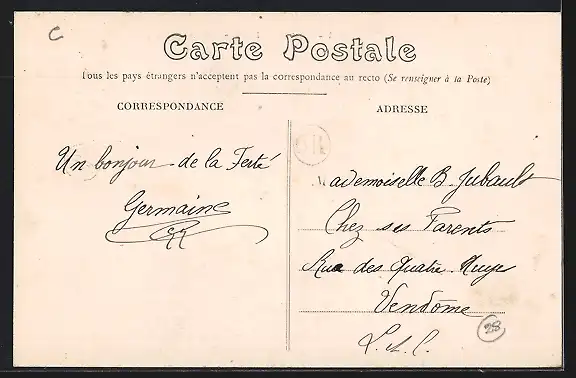 C
Carte Postale
Tous les pays étrangers n'acceptent pas la correspondance au recto (Se renseigner à la Poste)
CORRESPONDANCE
ADRESSE
Un bonjour de la Ferté
Germaine
Mademoiselle B. Jubault
Chez ses Parents
Rue des Quatre Huye
Vendôme
L. et C.
28